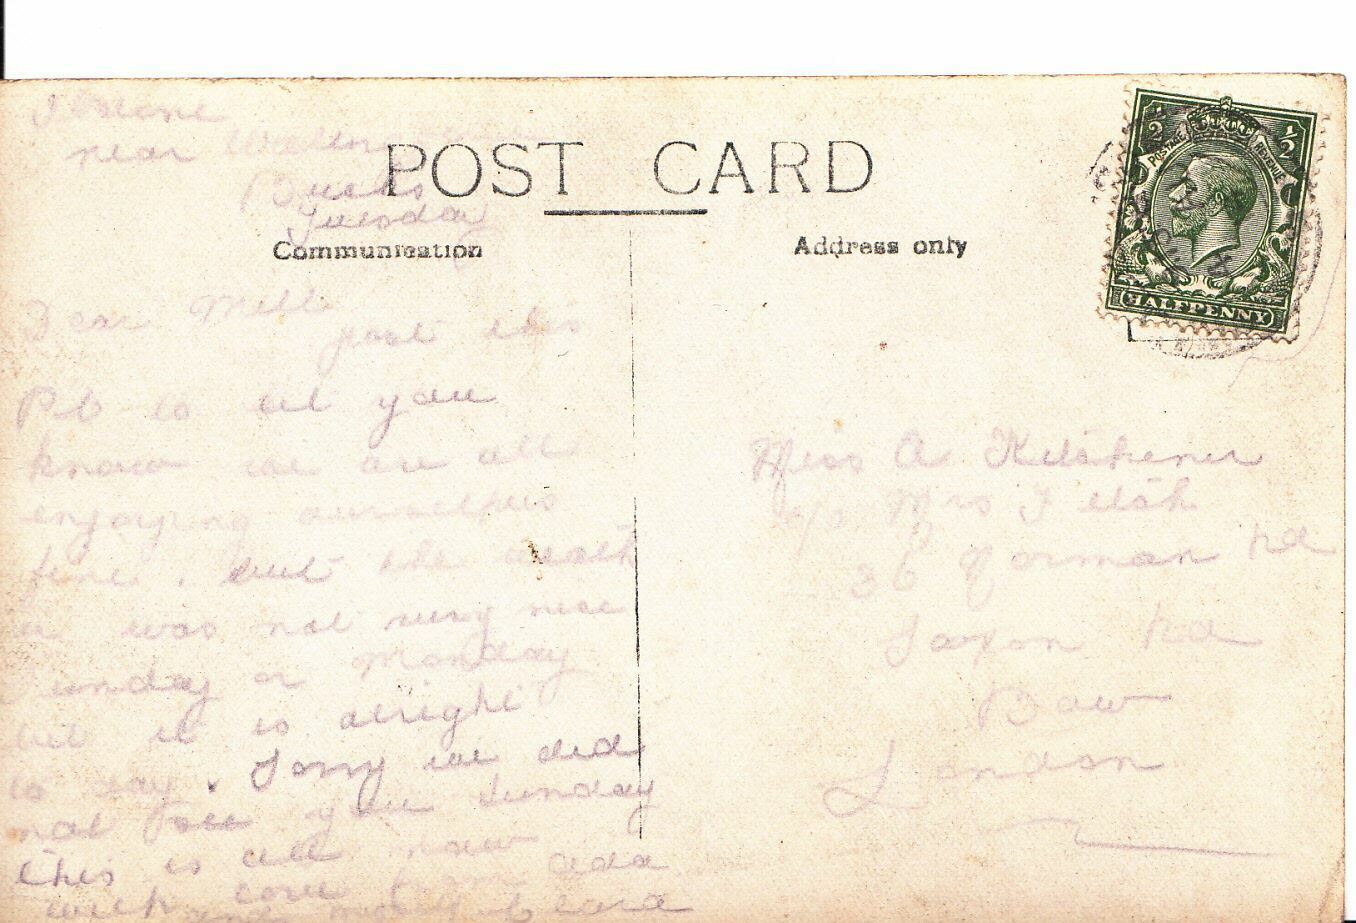 near
Bucks
Tuesday
POST CARD
Communication
Address only
HALFPENNY
POSTAGE
REVENUE
½
½
Dear Mill
just this
P C to let you
know we are all
enjoying ourselves
fine, but the weath
er was not very nice
Sunday or Monday
but it is alright
to day. Sorry we did
not see you Sunday
this is all now
with love from Ada
and
Miss A Kitchener
c/o Mrs
36 Norman Rd
Saxon Rd
Bow
London